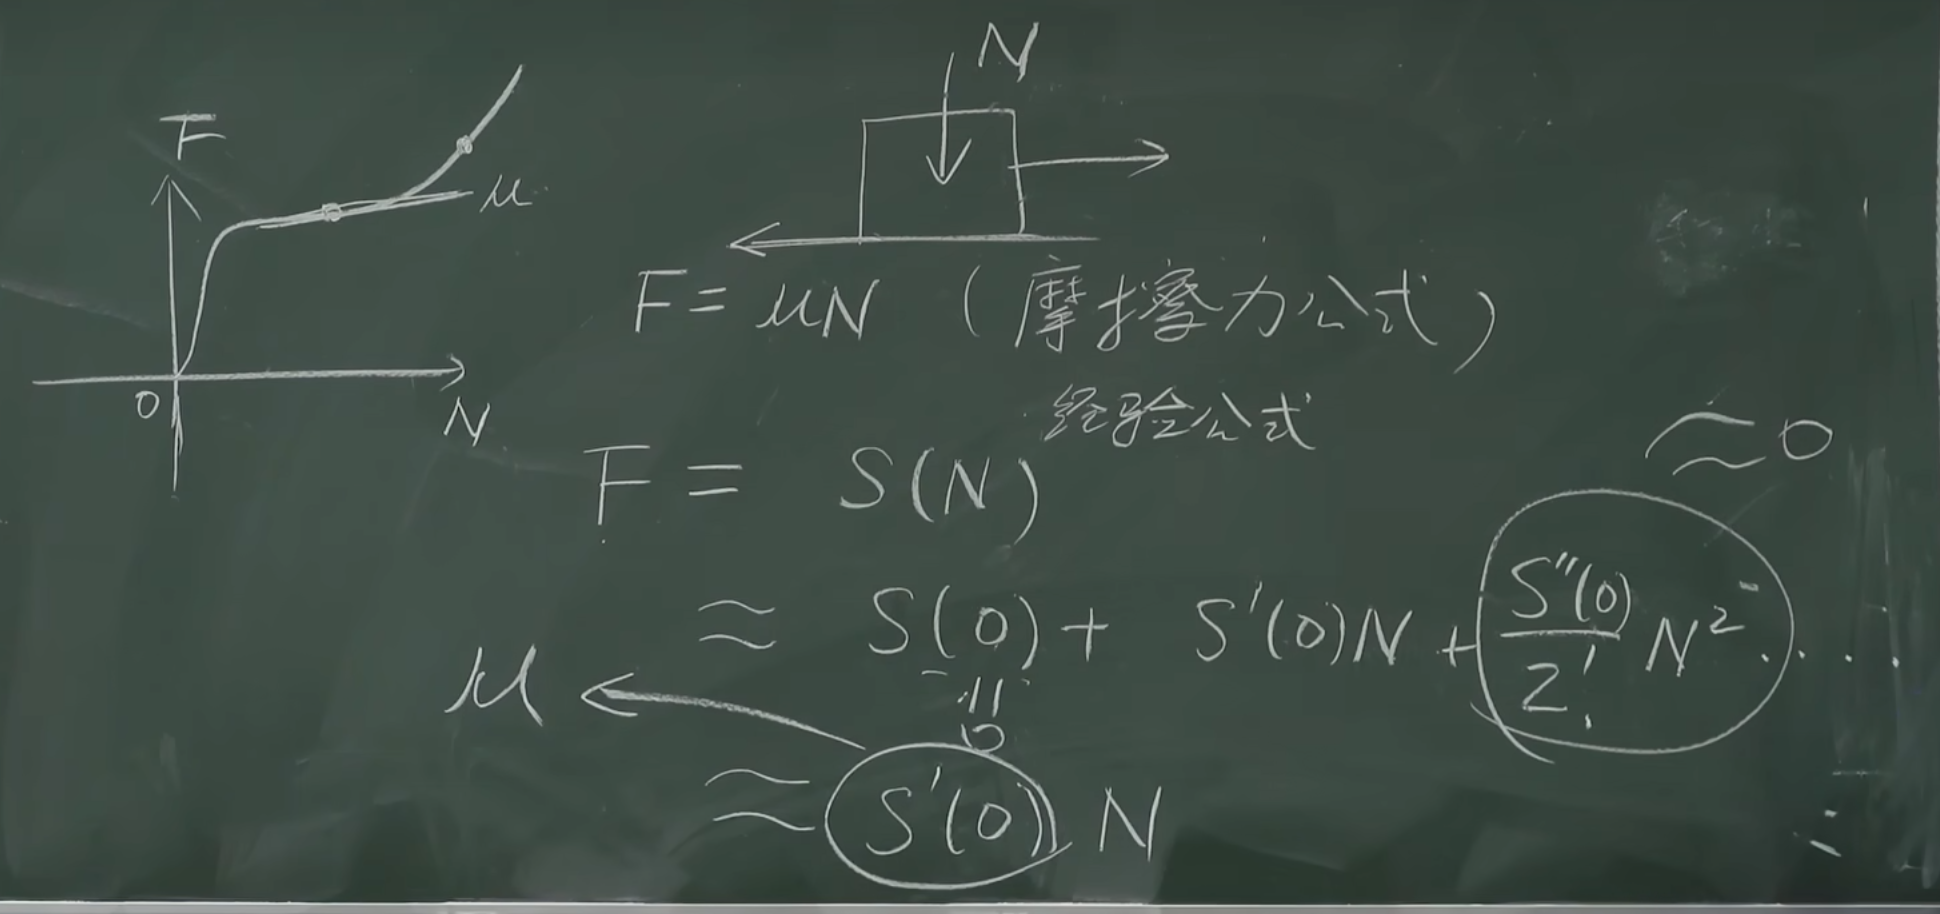 F
μ
O
N
N
F = μN (摩擦力公式)
经验公式
F = S(N)
≈ 0
≈ S(0) + S'(0)N + S''(0)/2! N² ....
= 0
μ ←
≈ S'(0) N